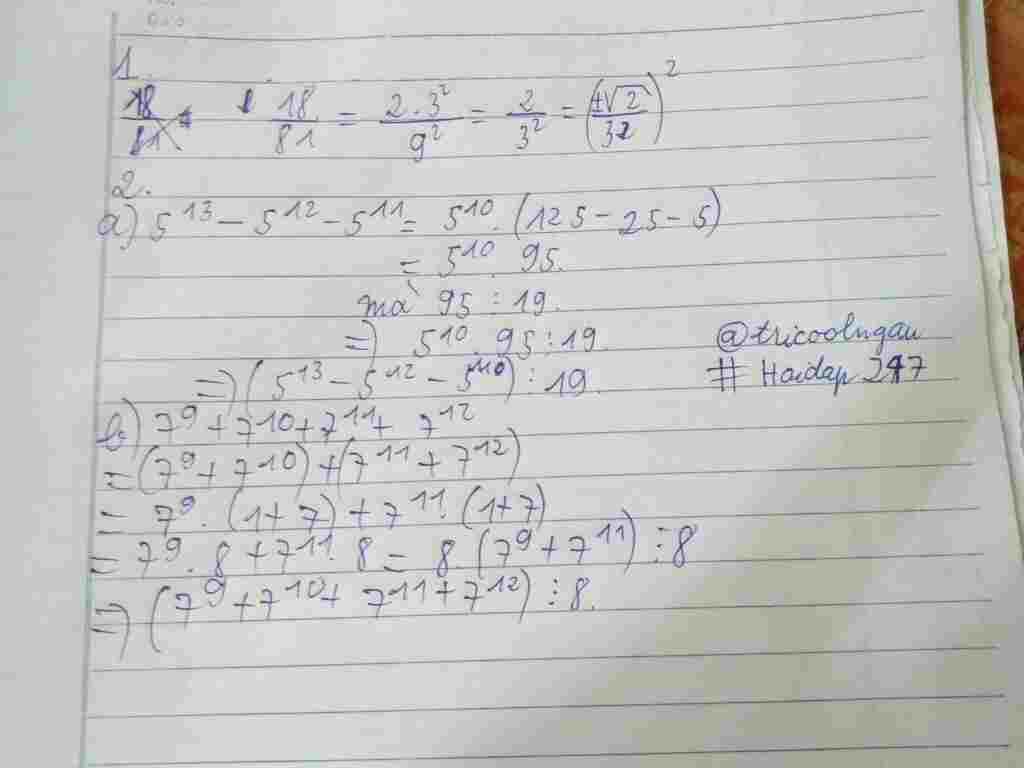 1.
18/81 = 18/81 = 2.3²/9² = 2/3² = (±√2/3)²
2.
a) 5¹³ - 5¹² - 5¹¹ = 5¹⁰. (125 - 25 - 5)
= 5¹⁰. 95.
mà 95 ⋮ 19.
=) 5¹⁰. 95 ⋮ 19
@tricoolngau
=) (5¹³ - 5¹² - 5¹⁰) ⋮ 19.
# Hoidap 247
b) 7⁹ + 7¹⁰ + 7¹¹ + 7¹²
= (7⁹ + 7¹⁰) + (7¹¹ + 7¹²)
= 7⁹. (1+7) + 7¹¹. (1+7)
= 7⁹. 8 + 7¹¹. 8 = 8. (7⁹ + 7¹¹) ⋮ 8
=) (7⁹ + 7¹⁰ + 7¹¹ + 7¹²) ⋮ 8.